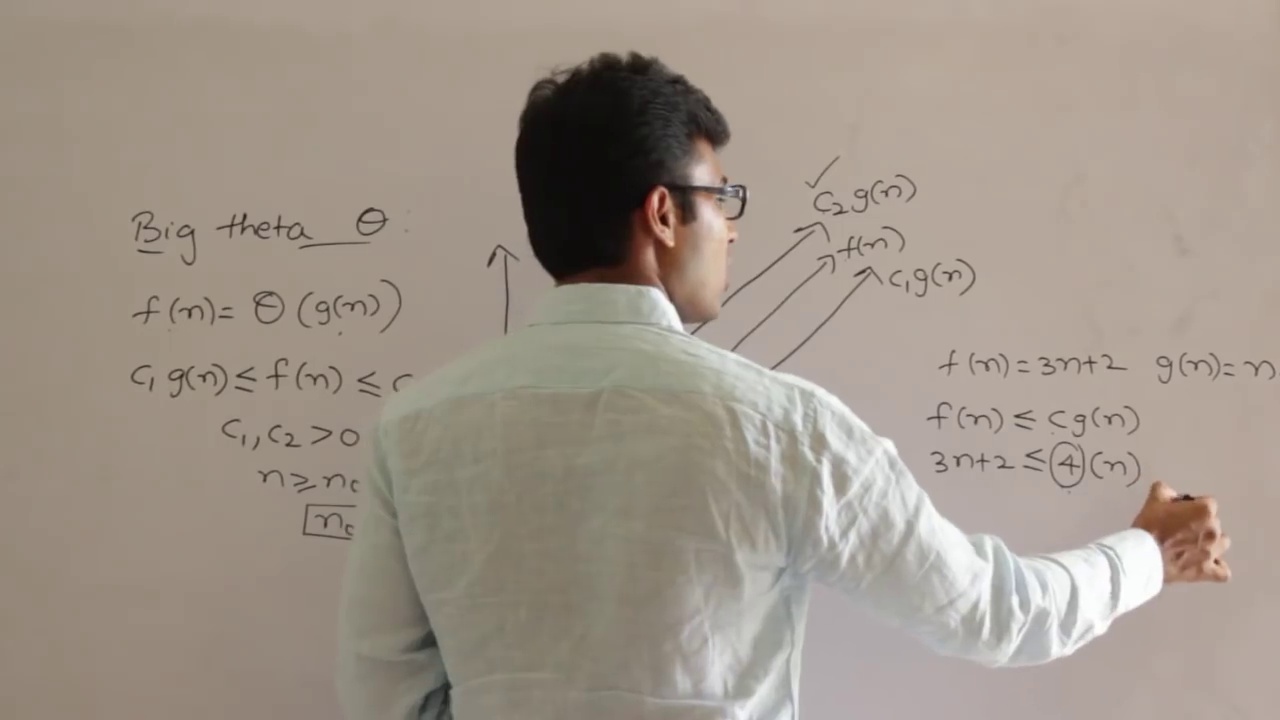 Big theta θ :
f(n) = θ (g(n))
c₁ g(n) ≤ f(n) ≤ c
c₁, c₂ > 0
n ≥ n₀
n₀
✓
c₂ g(n)
f(n)
c₁ g(n)
f(n) = 3n+2 g(n) = n
f(n) ≤ c g(n)
3n+2 ≤ 4 (n)